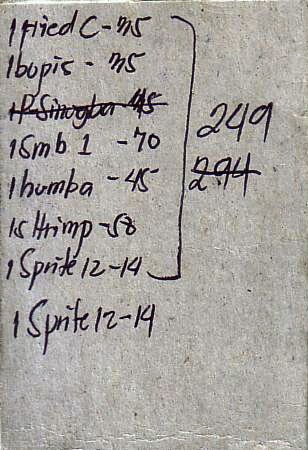 1 fried C - 35
1 bopis - 35
1 P Sinugba 45
1 Smb 1 - 70
1 humba - 45
1 sHrimp - 50
1 Sprite 12 - 14
249
294
1 Sprite 12 - 14